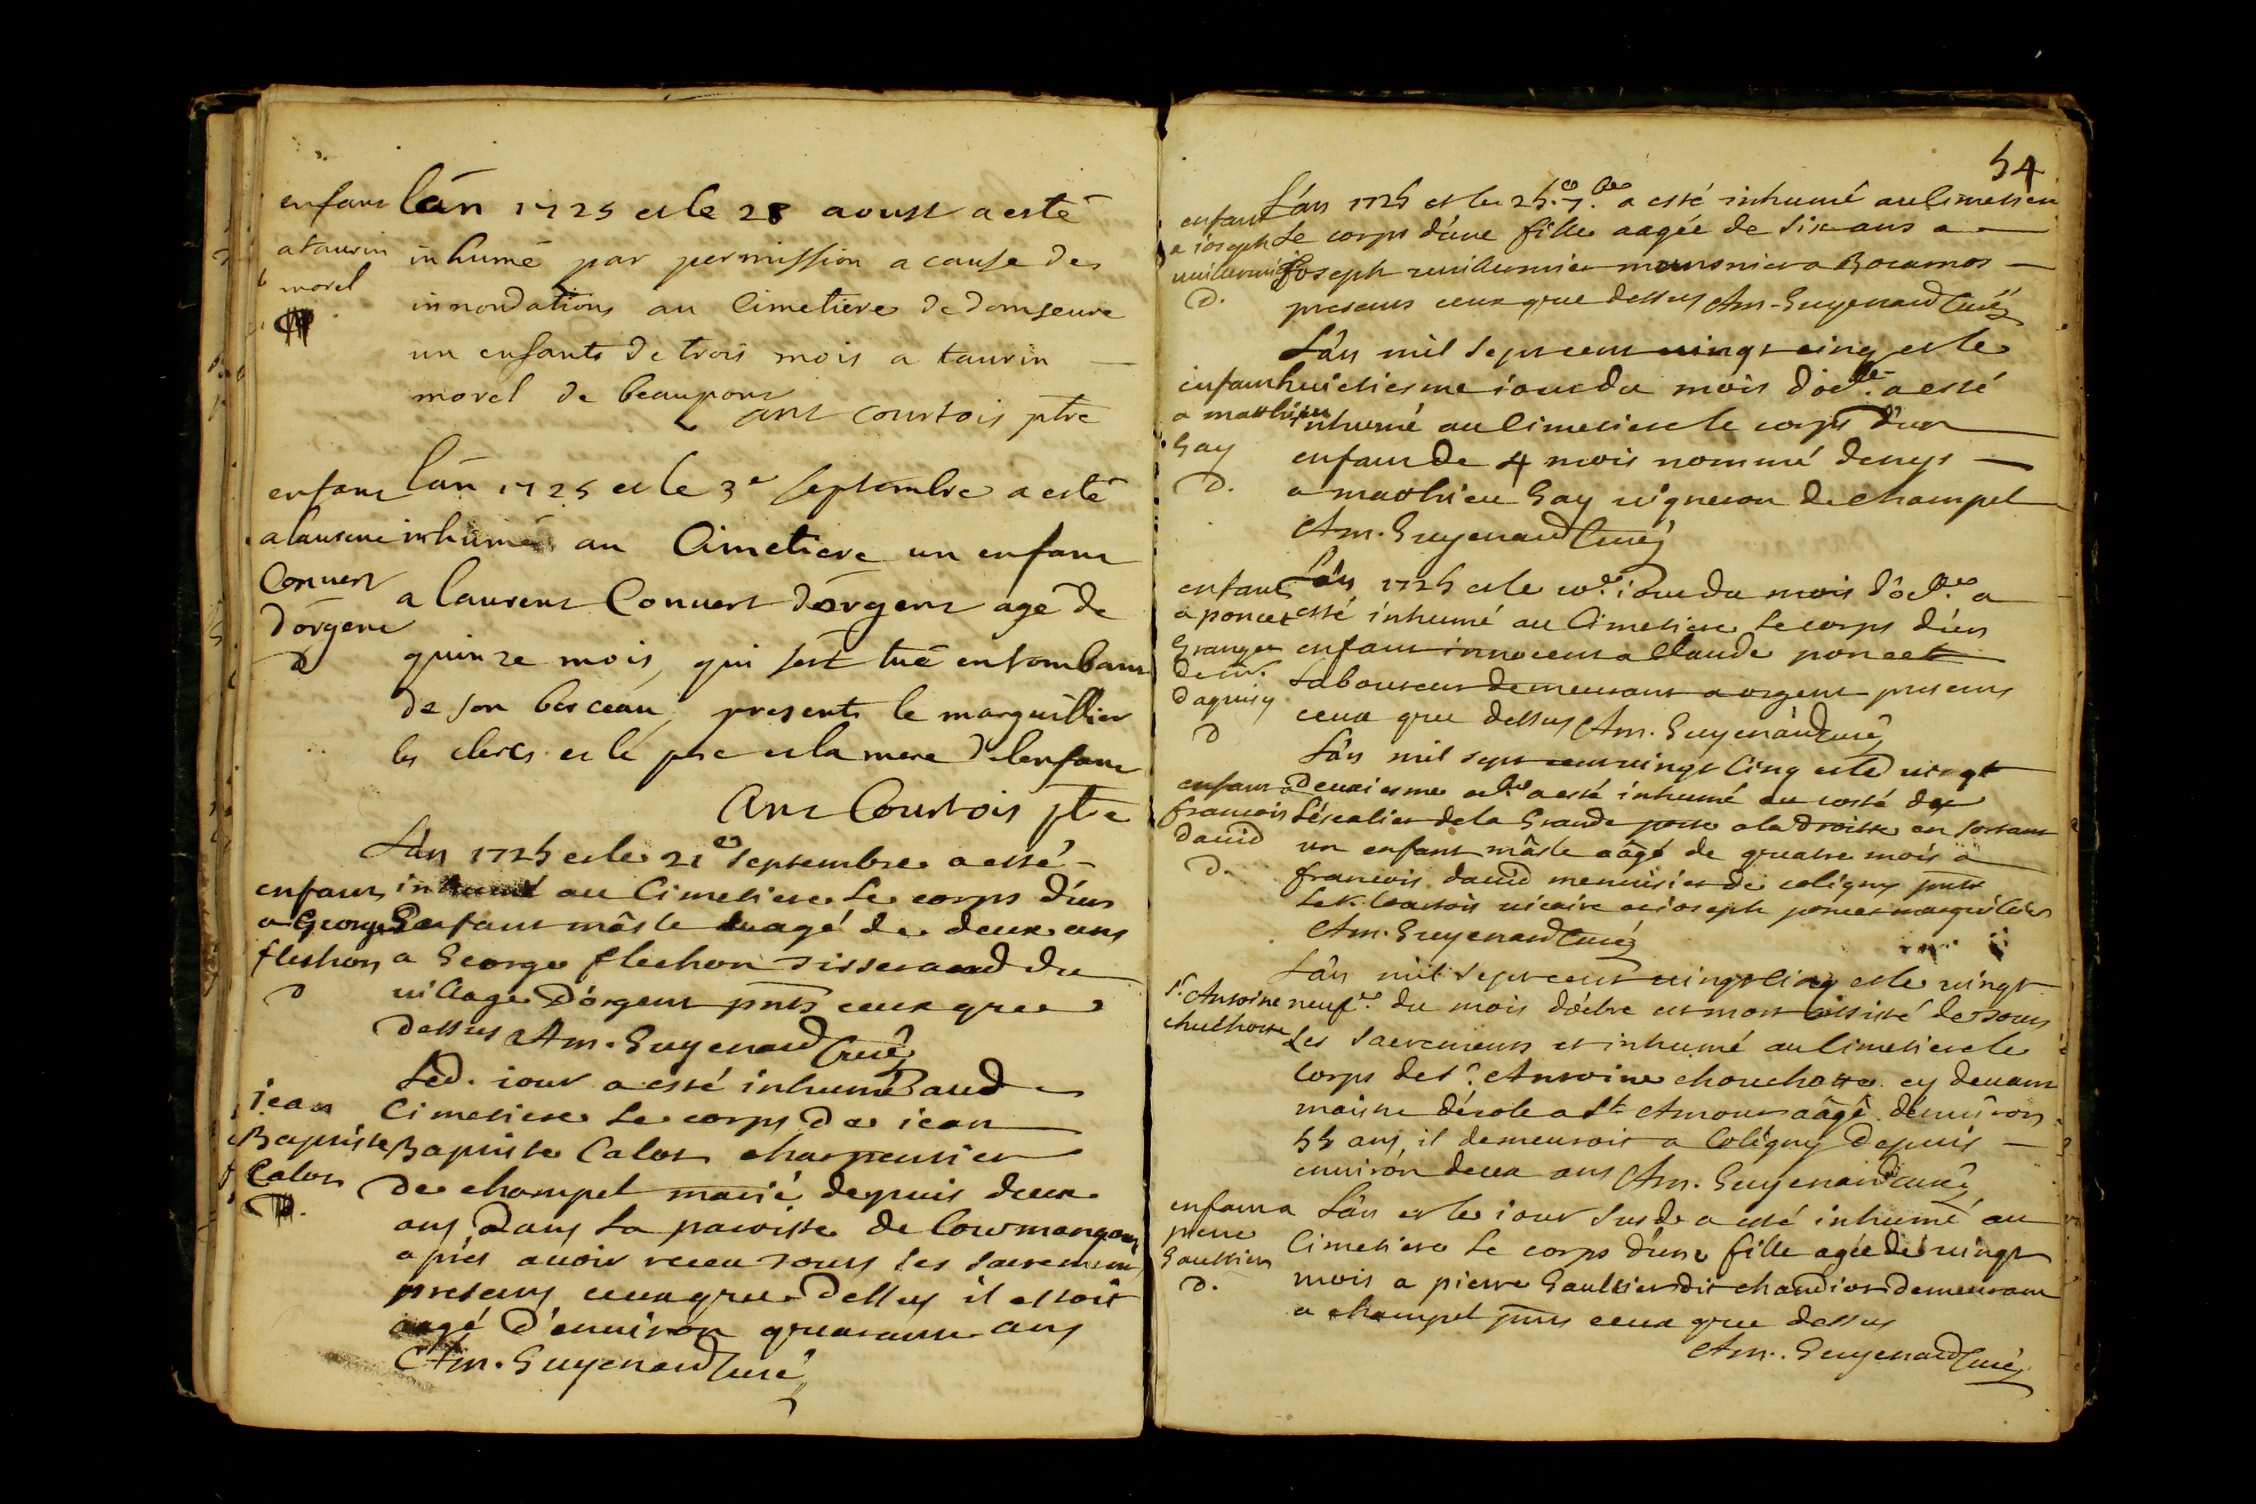 enfant
a taurin
morel
lan 1725 et le 28 aoust a esté
inhumé par permission a cause des
innondations au Cimetiere de domseure
un enfant de trois mois a taurin
morel de beaupont
ant courtois ptre
enfant
a laurent
Convert
d'orgent
D
lan 1725 et le 3e septembre a esté
inhumé au Cimetiere un enfant
a laurent Convert d'orgent agé de
quinze mois, qui sest tué en tombant
de son berceau, present le marguillier
les clercs et le pere et la mere de lenfant
Ant Courtois ptre
enfant
a George
flechon
D
L'an 1725 et le 21e septembre a esté
inhumé au Cimetiere Le corps d'un
Enfant mâsle aagé de deux ans
a George flechon tisserand du
village d'orgent pnts ceux que
dessus Am. Guyenard Curé
jean
Baptiste
Calot
Led. iour a esté inhumé aud
Cimetiere Le corps de jean
Baptiste Calot charpentier
de champel marié depuis deux
ans dans La paroisse de Cormangoux
aprés avoir receu tous les sacremens
presents ceux que dessus il estoit
aagé d'environ quarante ans
Am. Guyenard Curé
54
enfant
a ioseph
vuillermier
D.
L'an 1725 et le 25e 7bre a esté inhumé au Cimetiere
Le corps d'une fille aagée de six ans a
Joseph vuillermier a Bocarnos
presents ceux que dessus Am. Guyenard Curé
enfant
a matthieu
Gay
D.
L'an mil sept cent vingt cinq et le
huictiesme iour du mois d'oct.bre a esté
inhumé au Cimetiere le corps d'un
enfant de 4 mois nommé denys
a matthieu Gay vigneron de champel
Am. Guyenard Curé
enfant
a poncet
Granger
de mr.
D
L'an 1725 et le 10e iour du mois d'oct.bre a
esté inhumé au Cimetiere Le corps d'un
enfant innocent a Claude poncet
Laboureur demeurant a orgent presents
ceux que dessus Am. Guyenard Curé
enfant a
francois
david
D.
L'an mil sept cent vingt Cinq et le vingt
deuxiesme oct.bre a esté inhumé au costé de
L'éscalier de la Grande porte a la droitte en sortant
un enfant mâsle aâgé de quatre mois a
francois david menuisier de coligny pnts
Le sr. Courtois vicaire et joseph poncet marguillier
Am. Guyenard Curé
Sr. Antoine
chuchotte
L'an mil sept cent vingt cinq et le vingt
neufe. du mois d'octbre est mort assisté de tous
Les Sacrements et inhumé au Cimetiere le
Corps de Sr. Antoine chouchotte cy devant
maistre d'école a St Amour aâgé d'environ
55 ans, il demeuroit a Coligny depuis
environ deux ans Am. Guyenard Curé
enfant a
pierre
Gaultier
D.
L'an et le iour susd. a esté inhumé au
Cimetiere Le corps d'une fille agée de vingt
mois a pierre Gaultier dit chandior demeurant
a champel pnts ceux que dessus
Am. Guyenard Curé